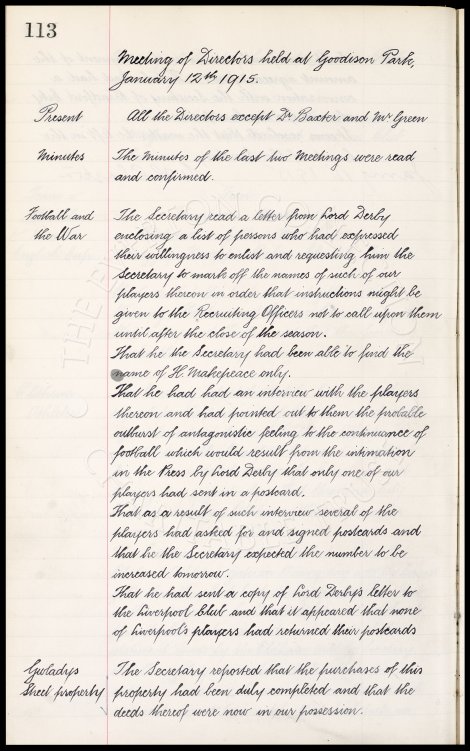 113
Meeting of Directors held at Goodison Park,
January 12th 1915.
Present All the Directors except Dr Baxter and Mr Green
Minutes The Minutes of the last two Meetings were read
and confirmed.
Football and The Secretary read a letter from Lord Derby
the War enclosing a list of persons who had expressed
their willingness to enlist and requesting him the
Secretary to mark off the names of such of our
players thereon in order that instructions might be
given to the Recruiting Officers not to call upon them
until after the close of the season.
That he the Secretary had been able to find the
name of H. Makepeace only.
That he had had an interview with the players
thereon and had pointed out to them the probable
outburst of antagonistic feeling to the continuance of
football which would result from the intimation
in the Press by Lord Derby that only one of our
players had sent in a postcard.
That as a result of such interview several of the
players had asked for and signed postcards and
that he the Secretary expected the number to be
increased tomorrow.
That he had sent a copy of Lord Derby's letter to
the Liverpool Club and that it appeared that none
of Liverpool's players had returned their postcards
Gwladys The Secretary reported that the purchases of this
Street property property had been duly completed and that the
deeds thereof were now in our possession.